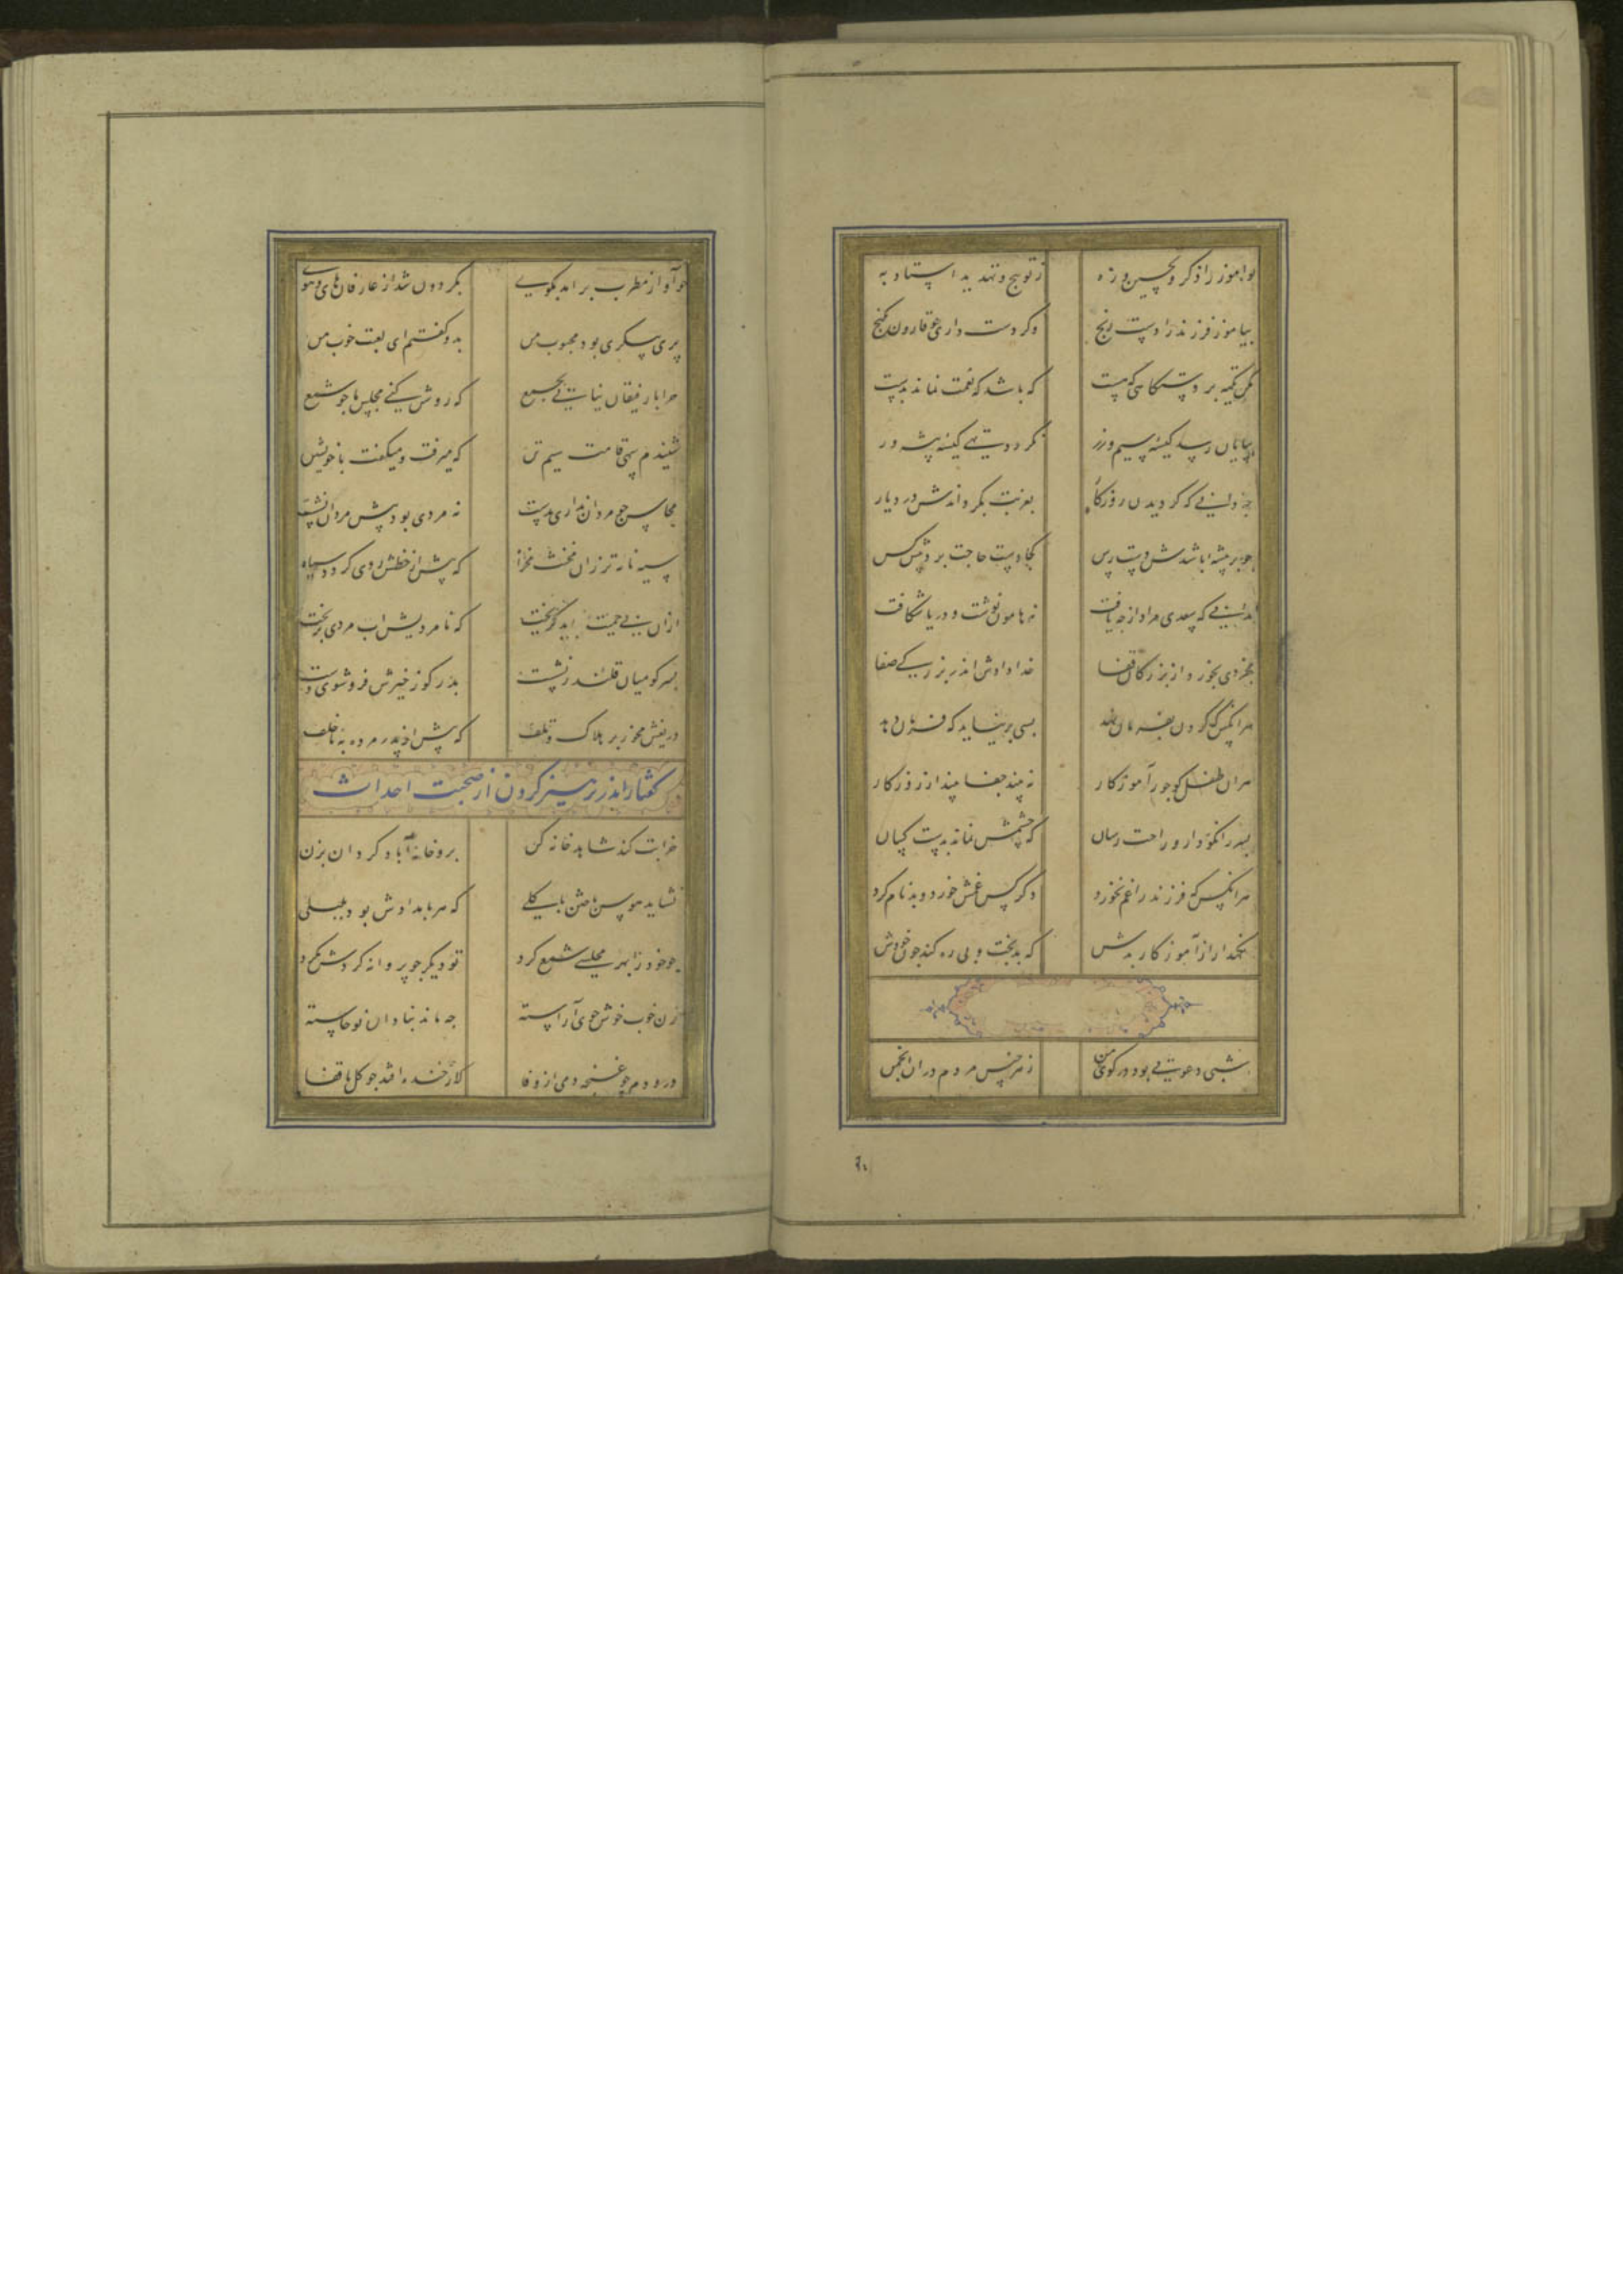 نوآموز را ذکر و تحسین و زه ز توبیخ و تهدید استاد به
بیاموز فرزند را دست رنج وگر دست داری چو قارون بکنج
مکن تکیه بر دستگاهی که هست که باشد که نعمت نماند بدست
بپایان رسد کیسه سیم و زر نگردد تهی کیسه پیشه ور
چه دانی که گردیدن روزگار بغربت بگرداندش در دیار
چو بر پیشه باشدش دست رس کجا دست حاجت برد پیش کس
ندانی که سعدی مراد از چه یافت نه هامون نوشت و دریا شکافت
بخردی بخورد از بزرگان قفا خدا دادش اندر بزرگی صفا
هر انکس که گردن بفرمان نهد بسی بر نیاید که فرمان دهد
هر ان طفل کو جور آموزگار نه بیند جفا بیند از روزگار
پسر را نکو دار و راحت رسان که چشمش نماند بدست کسان
هر انکس که فرزند را غم نخورد دگر کس غمش خورد و بدنام کرد
نگهدار از آموزگار بدش که بدبخت و بی ره کند چون خودش
شبی دعوتی بود در کوی من ز هر جنس مردم در ان انجمن
۹۰
چو آواز مطرب برامد بکوی بگردون شد از عارفان های و هوی
پری پیکری بود محبوب من بدو گفتم ای لعبت خوب من
چرا با رفیقان نیایی بجمع که روشن کنی مجلس ما چو شمع
شنیدم سهی قامت سیم تن که میرفت و میگفت با خویشتن
محاسن چو مردان نداری بدست نه مردی بود پیش مردان نشست
سیه نامه تر زان مخنث مخواه که پیش از خطش روی گردد سیاه
ازان بی حمیت بباید گریخت که نامردیش اب مردی بریخت
پسر کو میان قلندر نشست پدر کو ز خیرش فروشوی دست
دریغش مخور بر هلاک و تلف که پیش از پدر مرده به ناخلف
گفتار اندر پرهیز کردن از صحبت احداث
خرابت کند شاهد خانه کن برو خانه آباد گردان بزن
نشاید هوس باختن با گلی که هر بامدادش بود بلبلی
چو خود را بهر مجلسی شمع کرد تو دیگر چو پروانه گردش مگرد
زن خوب خوش خوی آراسته چه ماند بنادان نوخاسته
در و دم چو غنچه دمی از وفا که از خنده افتد چو گل با قفا